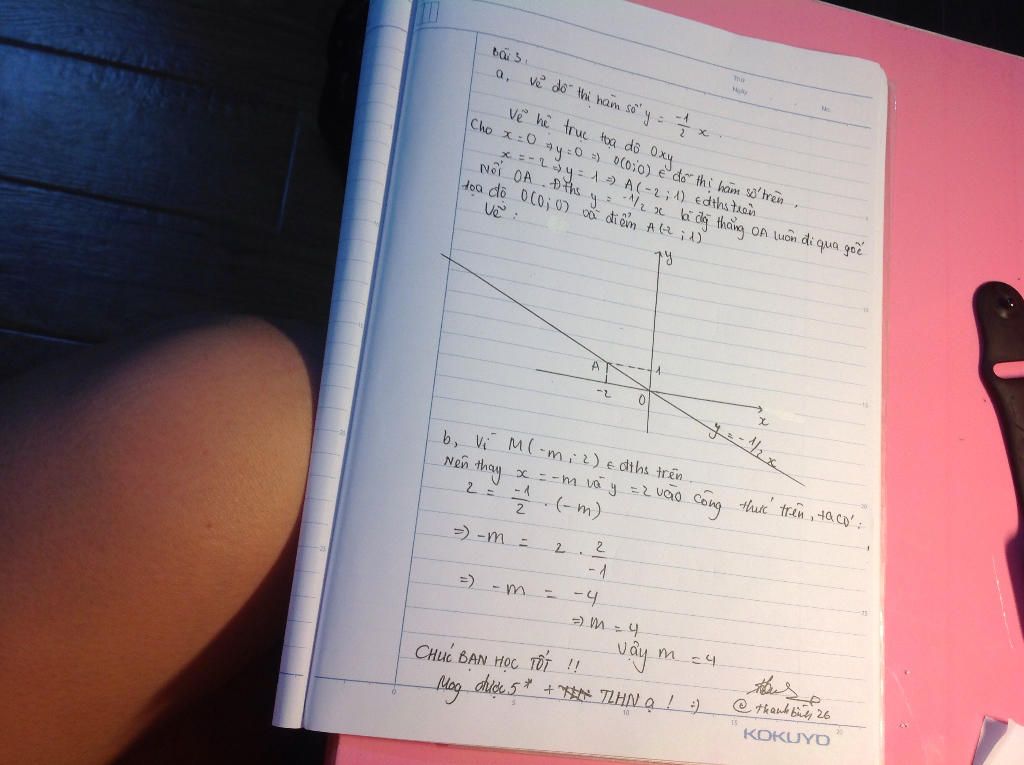 Thứ
Ngày
No.
Bài 3.
a, Vẽ đồ thị hàm số y = -1/2 x.
Vẽ hệ trục tọa độ Oxy
Cho x=0 ⇒ y=0 ⇒ O(0;0) ∈ đồ thị hàm số trên.
x=-2 ⇒ y=1 ⇒ A(-2;1) ∈ đths trên
Nối OA. Đths y = -1/2 x là đg thẳng OA luôn đi qua gốc
tọa độ O(0;0) và điểm A(-2;1)
Vẽ:
y
A
1
-2
O
x
y = -1/2 x
b, Vì M(-m;2) ∈ đths trên.
Nên thay x = -m và y = 2 vào công thức trên, ta có:
2 = -1/2 . (-m)
⇒ -m = 2 . 2/-1
⇒ -m = -4
⇒ m = 4
Vậy m = 4
CHÚC BẠN HỌC TỐT !!
Mog được 5* + TLHN ạ ! :)
@thanhbinh26
KOKUYO